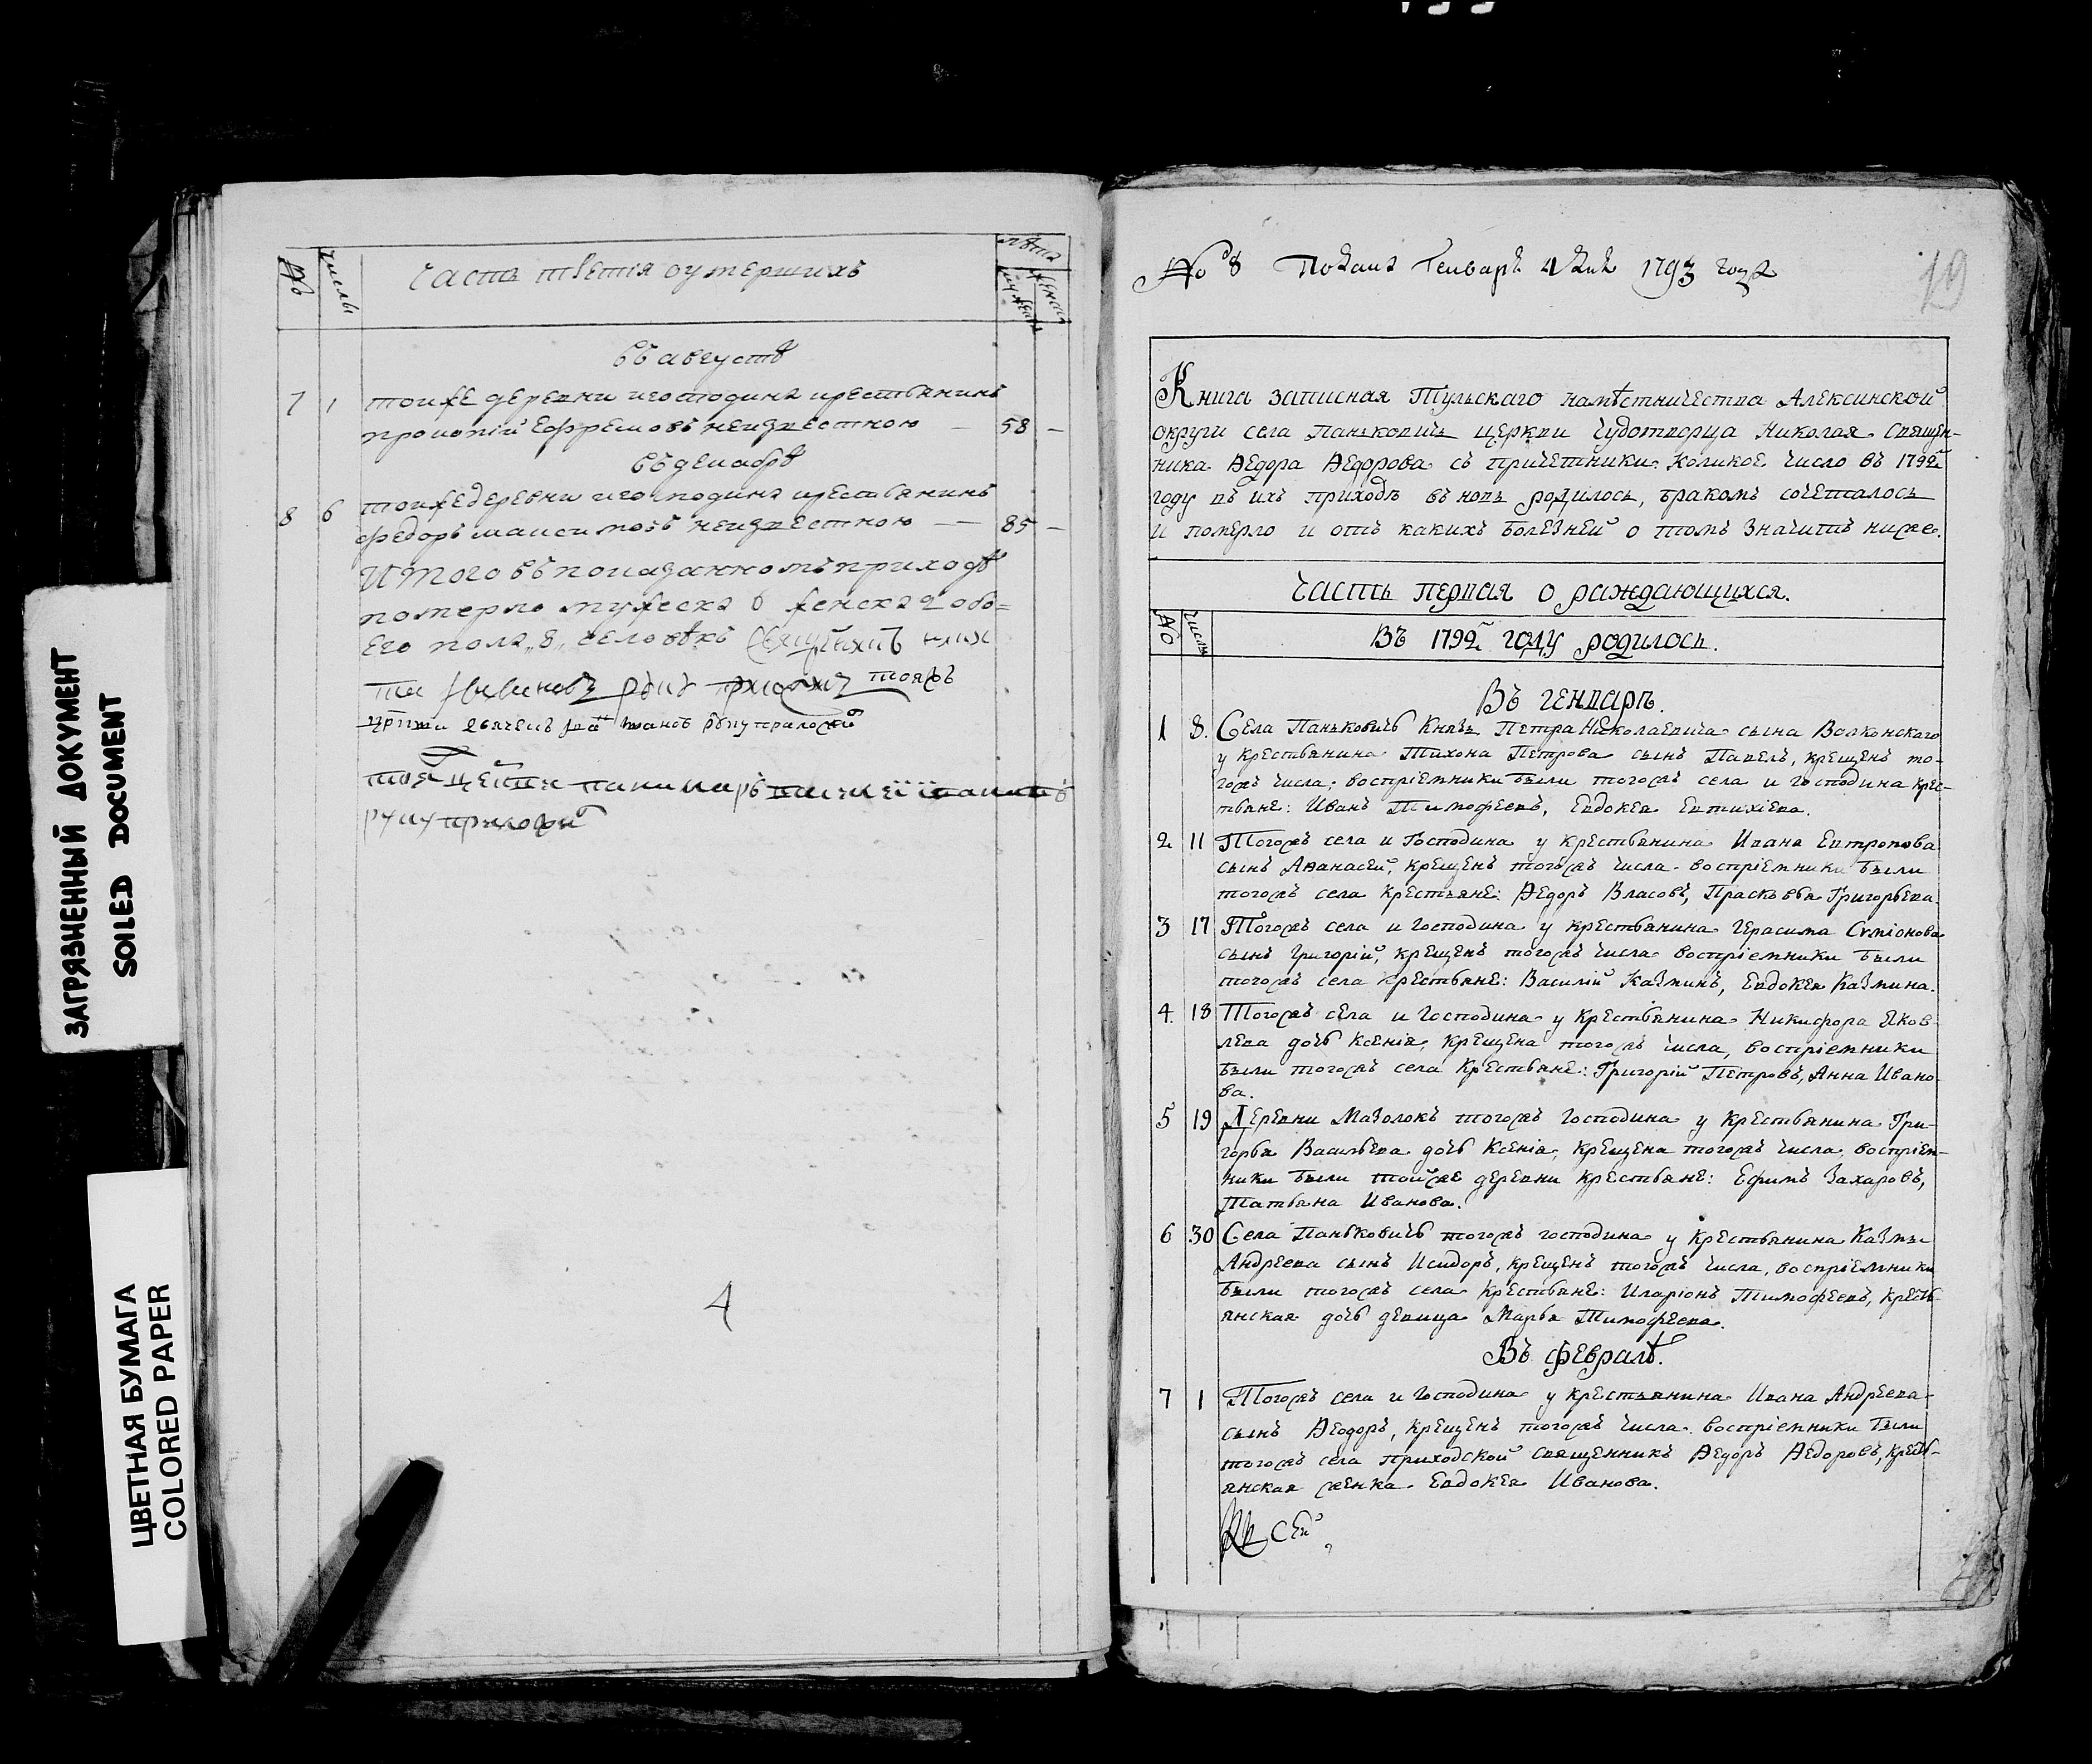 ЗАГРЯЗНЕННЫЙ ДОКУМЕНТ
SOILED DOCUMENT
ЦВЕТНАЯ БУМАГА
COLORED PAPER
№
числы
Часть третія оумершихъ
лѣта
мужеска
женска
въ августѣ
7 1 тоиже деревни иго господина крестьянинъ
прокопій Ефремовъ неизвестною — 58 —
въ декабрѣ
8 6 тоиже деревни иго господина крестьянинъ
федоръ максимовъ неизвестною — 85 —
Итого въ показанномъ приходѣ
померло мужеска 6 женска 2 обо=
его пола „8„ человѣкъ
4
№ 8 Подана Генваря 4 дня 1793 года
19
Книга записная Тульскаго намѣстничества Алексинской
округи села Паньковичь церкви Чудотворца Николая Священ-
ника Ѳедора Ѳедорова съ причетники. Коликое число въ 1792м
году въ ихъ приходѣ вновь родилось, бракомъ сочеталось
и померло и отъ какихъ болезней о томъ значитъ ниже.
Часть первая о раждающихся.
№
числы
Въ 1792м году родилось.
Въ генварѣ.
1 8. Села Паньковичь Князь Петра Николаевича сына Волконскаго
у крестьянина Тихона Петрова сынъ Павелъ, крещенъ то-
гожъ числа; воспріемники были тогожъ села и господина крес-
тьяне: Иванъ Тимофеевъ, Евдокея Евтихіева.
2 11 Тогожъ села и Господина у крестьянина Ивана Евтропова
сынъ Аѳанасей, крещенъ тогожъ числа. воспріемники были
тогожъ села крестьяне: Ѳедоръ Власовъ, Прасковья Григорьева.
3 17 Тогожъ села и господина у крестьянина Герасима Сѵміонова
сынъ Григорій, крещенъ тогожъ числа воспріемники были
тогожъ села крестьяне: Василій Казминъ, Евдокея Казмина.
4. 18 Тогожъ села и Господина у крестьянина Никифора Яков-
лева дочь Ксенія, крещена тогожъ числа, воспріемники
были тогожъ села крестьяне: Григорій Петровъ, Анна Ивано-
ва.
5 19 Деревни Мазолокъ тогожъ господина у крестьянина Гри-
горья Васильева дочь Ксенія, крещена тогожъ числа, воспріем-
ники были тойже деревни крестьяне: Ефимъ Захаровъ,
Татьяна Иванова.
6 30 Села Паньковичь тогожъ господина у крестьянина Казмы
Андреева сынъ Исидоръ, крещенъ тогожъ числа, воспріемники
были тогожъ села крестьяне: Иларіонъ Тимофеевъ, кресть-
янская дочь девица Марья Тимофеева.
Въ февралѣ.
7 1 Тогожъ села и господина у крестьянина Ивана Андреева
сынъ Ѳеодоръ, крещенъ тогожъ числа. воспріемники были
тогожъ села приходской священникъ Ѳедоръ Ѳедоровъ, кресть-
янская женка Евдокея Иванова.
Къ сей